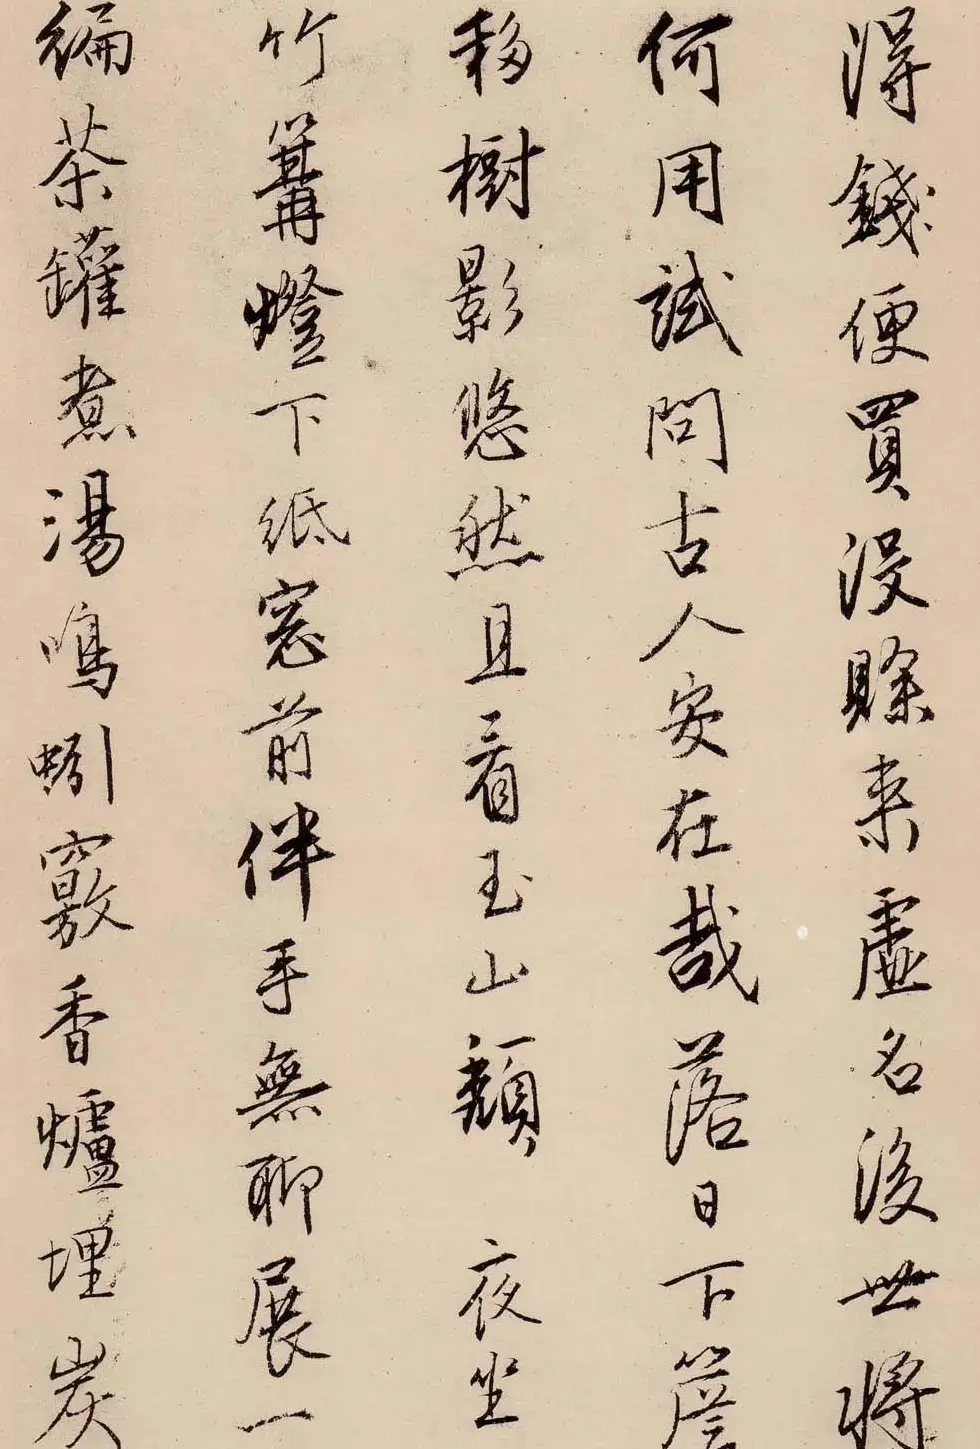 得錢便買沒賒来虚名後世將
何用試問古人安在哉落日下簷
移樹影悠然且看玉山頹 夜坐
竹篝燈下紙窓前伴手無聊展一
編茶罐煮湯鳴蚓竅香爐埋炭